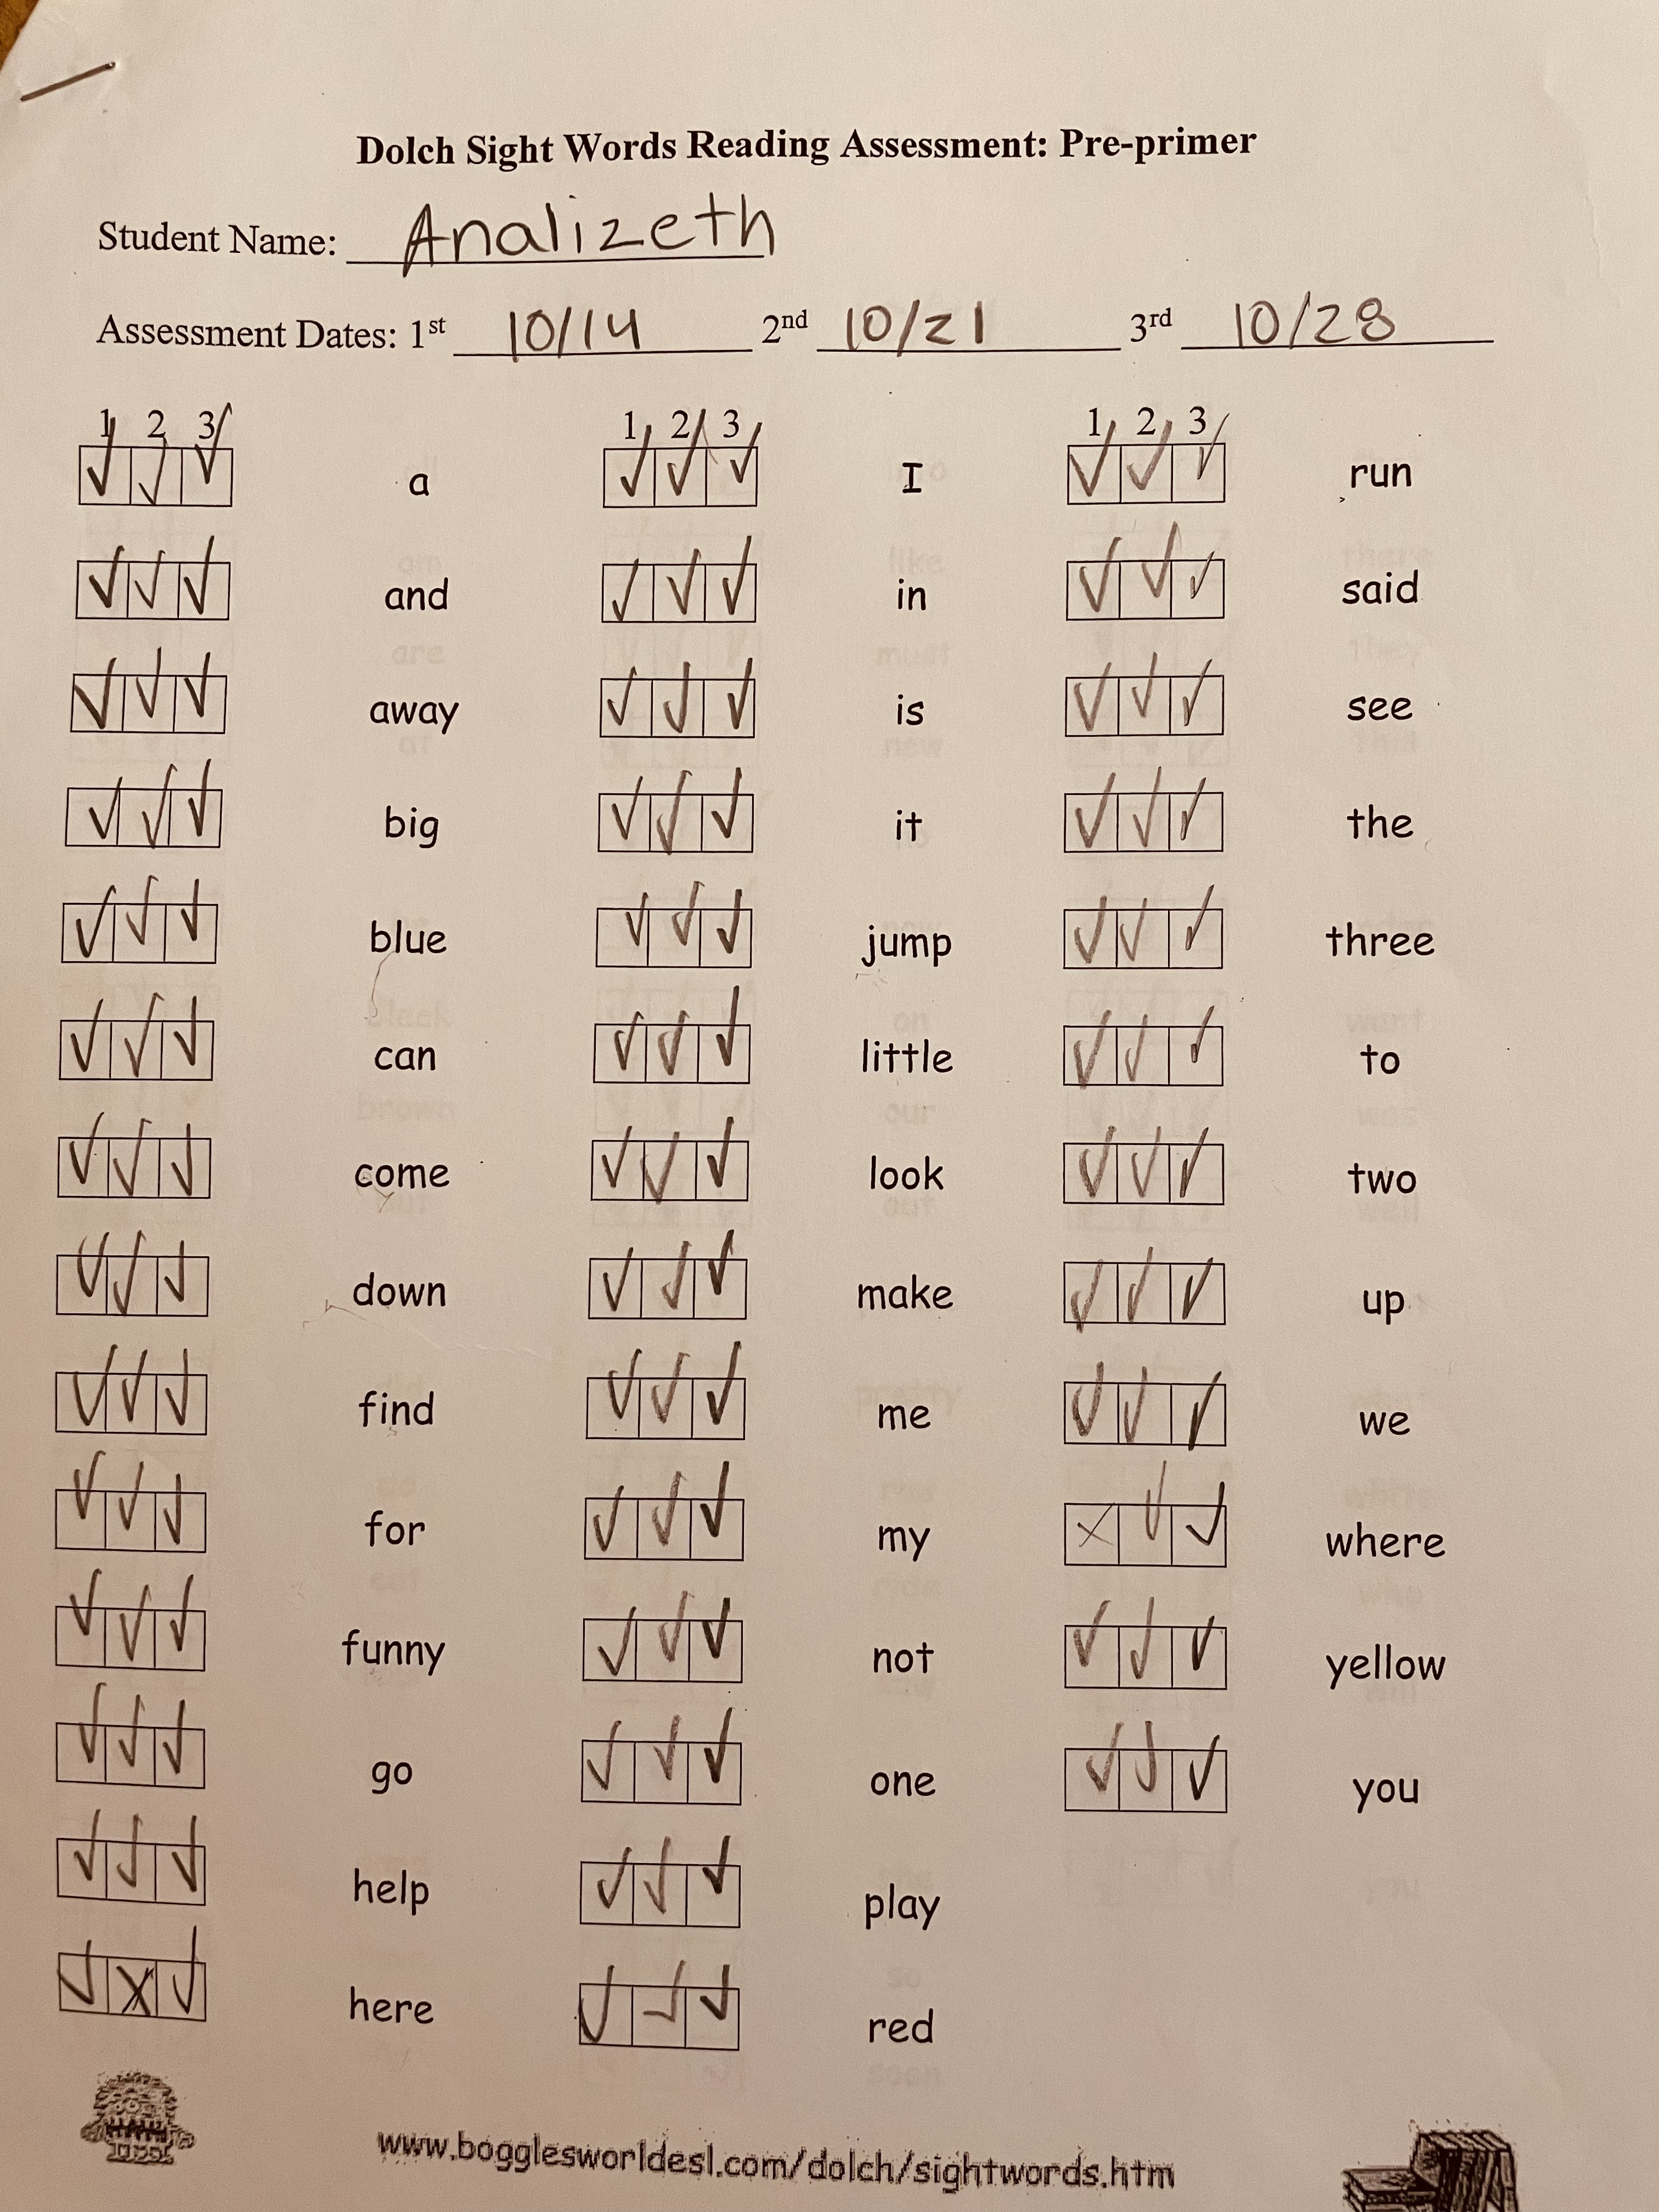 Dolch Sight Words Reading Assessment: Pre-primer
Student Name: Analizeth
Assessment Dates: 1st 10/14 2nd 10/21 3rd 10/28
1 2 3 1 2 3 1 2 3
✓ ✓ ✓ a ✓ ✓ ✓ I ✓ ✓ ✓ run
✓ ✓ ✓ and ✓ ✓ ✓ in ✓ ✓ ✓ said
✓ ✓ ✓ away ✓ ✓ ✓ is ✓ ✓ ✓ see
✓ ✓ ✓ big ✓ ✓ ✓ it ✓ ✓ ✓ the
✓ ✓ ✓ blue ✓ ✓ ✓ jump ✓ ✓ ✓ three
✓ ✓ ✓ can ✓ ✓ ✓ little ✓ ✓ ✓ to
✓ ✓ ✓ come ✓ ✓ ✓ look ✓ ✓ ✓ two
✓ ✓ ✓ down ✓ ✓ ✓ make ✓ ✓ ✓ up
✓ ✓ ✓ find ✓ ✓ ✓ me ✓ ✓ ✓ we
✓ ✓ ✓ for ✓ ✓ ✓ my X ✓ ✓ where
✓ ✓ ✓ funny ✓ ✓ ✓ not ✓ ✓ ✓ yellow
✓ ✓ ✓ go ✓ ✓ ✓ one ✓ ✓ ✓ you
✓ ✓ ✓ help ✓ ✓ ✓ play
✓ X ✓ here ✓ ✓ ✓ red
www.bogglesworldesl.com/dolch/sightwords.htm